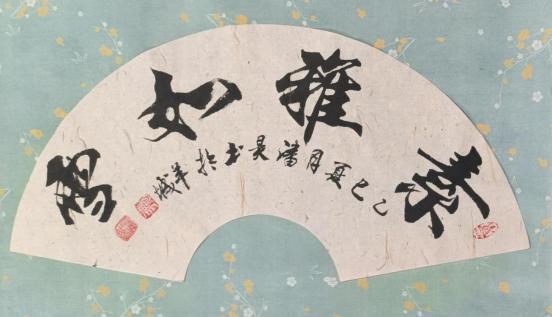 素雅如雪
乙巳夏月潘昊书於羊城